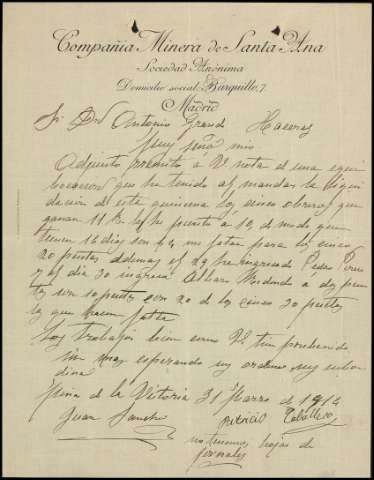 Compañia Minera de Santa Ana
Sociedad Anónima
Domicilio social, Barquillo, 7.
Madrid
Sr Dn Antonio Grand Haceras
Muy señor mio
Adjunto remito a V nota de una equi
bocacion que he tenido al mandar la liqui
dacion de esta quincena los cinco obreros que
ganan 11 R y he puesto a 10, de modo que
tienen 16 dias son 64 me faltan para los cinco
20 pesetas ademas el 29 ha ingresado Pedro
y el dia 30 ingresa a dos pese
tas son 10 pesetas son 20 de los cinco 30 pesetas
la que hacen falta
Los trabajos bien como V.
sin mas esperando su ordene suy subor
dina
Mina de la Victoria 31 Marzo de 1914
Juan Sancho Patricio Caballero
no tenemos hojas de
jornales